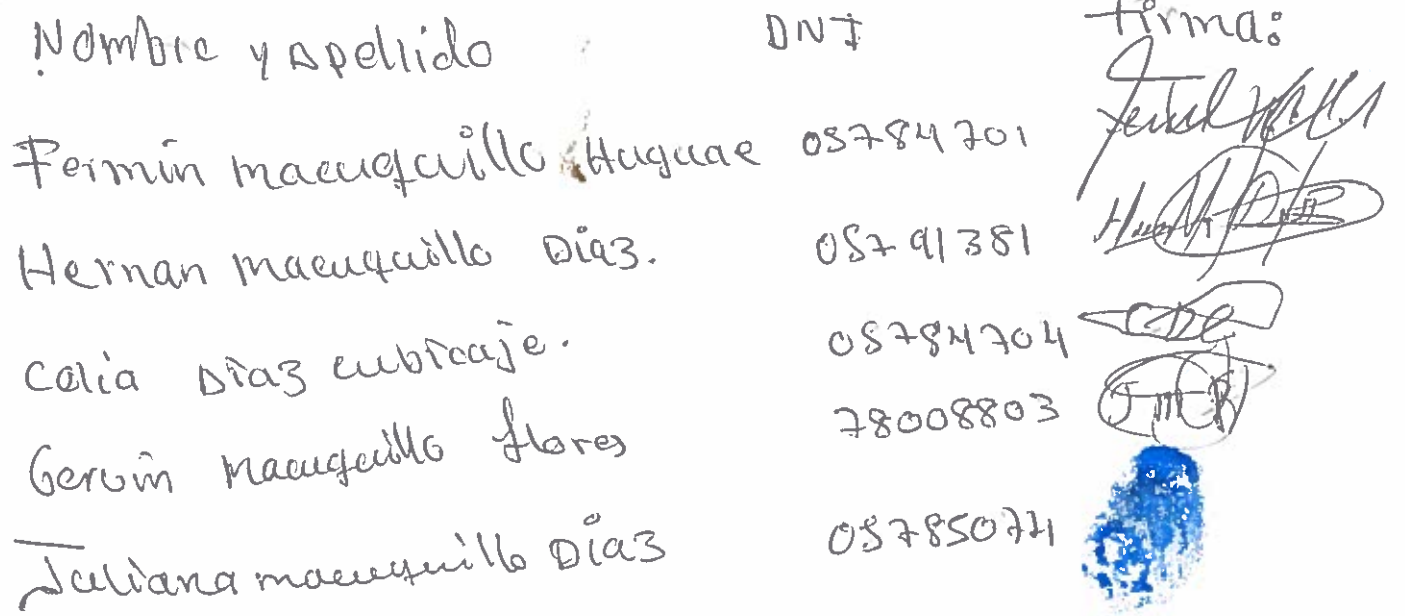 Nombre y Apellido DNI Firma:
Fermin macuquillo Huguae 05784701
Hernan macuquillo Díaz. 05791381
Celia Díaz cubicaje. 05784704
Gervin macuquillo flores 78008803
Juliana macuquillo Díaz